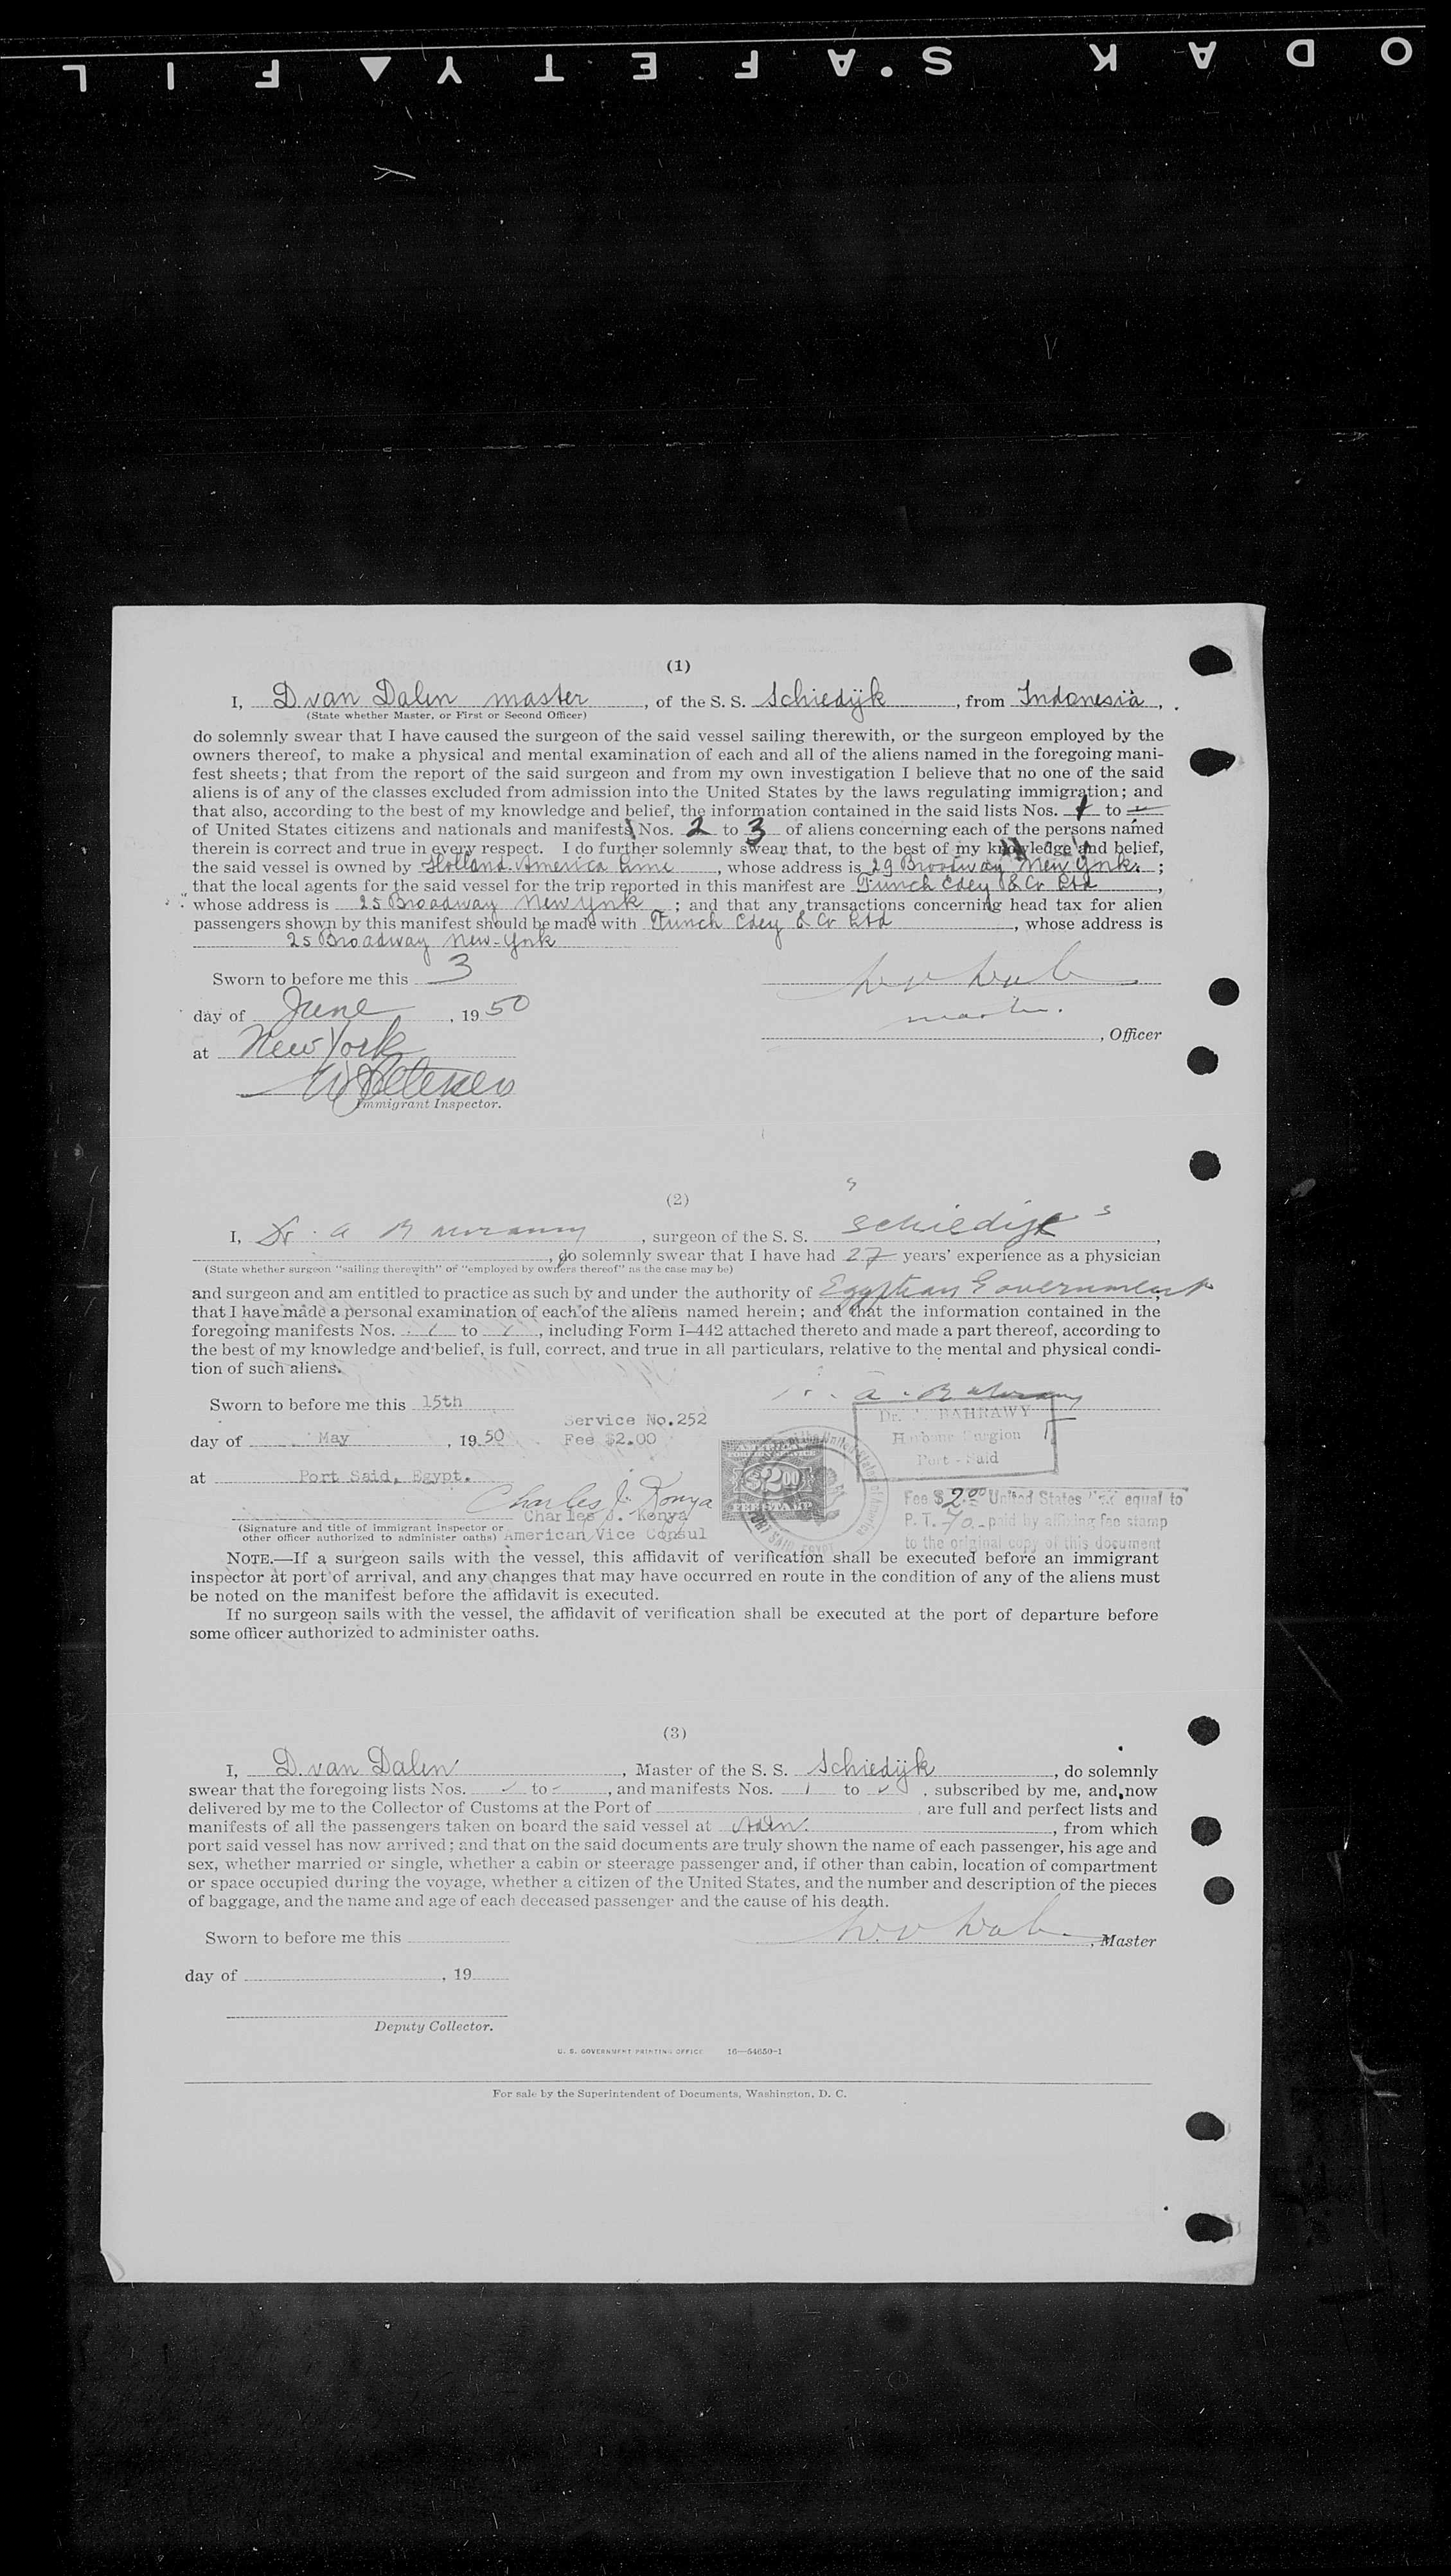 ODAK S'AFETY FIL
(1)
I, D van Dalen master, of the S. S. Schiedijk, from Indonesia,
(State whether Master, or First or Second Officer)
do solemnly swear that I have caused the surgeon of the said vessel sailing therewith, or the surgeon employed by the
owners thereof, to make a physical and mental examination of each and all of the aliens named in the foregoing mani-
fest sheets; that from the report of the said surgeon and from my own investigation I believe that no one of the said
aliens is of any of the classes excluded from admission into the United States by the laws regulating immigration; and
that also, according to the best of my knowledge and belief, the information contained in the said lists Nos. 1 to
of United States citizens and nationals and manifests Nos. 2 to 3 of aliens concerning each of the persons named
therein is correct and true in every respect. I do further solemnly swear that, to the best of my knowledge and belief,
the said vessel is owned by Holland-America Line, whose address is 29 Broadway New York. ;
that the local agents for the said vessel for the trip reported in this manifest are Funch Edey & Co Ltd,
whose address is 25 Broadway New York ; and that any transactions concerning head tax for alien
passengers shown by this manifest should be made with Funch Edey & Co Ltd, whose address is
25 Broadway New-York
Sworn to before me this 3
day of June, 1950
master.
, Officer
at New York
Immigrant Inspector.
(2)
I, Dr. A Bahrawy, surgeon of the S. S. "Schiedijk",
, do solemnly swear that I have had 27 years' experience as a physician
(State whether surgeon "sailing therewith" or "employed by owners thereof" as the case may be)
and surgeon and am entitled to practice as such by and under the authority of Egyptian Government,
that I have made a personal examination of each of the aliens named herein; and that the information contained in the
foregoing manifests Nos. 1 to 1, including Form I-442 attached thereto and made a part thereof, according to
the best of my knowledge and belief, is full, correct, and true in all particulars, relative to the mental and physical condi-
tion of such aliens.
Sworn to before me this 15th
Dr. A. Bahrawy
Service No.252
Dr. BAHRAWY
day of May, 1950
Fee $2.00
Harbour Surgion
Port - Said
at Port Said, Egypt.
$2.00
FEE STAMP
Charles J. Konya
Fee $2.00 United States equal to
Charles J. Konya
P. T. 70 paid by affixing fee stamp
(Signature and title of immigrant inspector or
other officer authorized to administer oaths) American Vice Consul
to the original copy of this document
NOTE.—If a surgeon sails with the vessel, this affidavit of verification shall be executed before an immigrant
inspector at port of arrival, and any changes that may have occurred en route in the condition of any of the aliens must
be noted on the manifest before the affidavit is executed.
If no surgeon sails with the vessel, the affidavit of verification shall be executed at the port of departure before
some officer authorized to administer oaths.
(3)
I, D. van Dalen, Master of the S. S. Schiedijk, do solemnly
swear that the foregoing lists Nos. to , and manifests Nos. 1 to , subscribed by me, and now
delivered by me to the Collector of Customs at the Port of are full and perfect lists and
manifests of all the passengers taken on board the said vessel at Aden., from which
port said vessel has now arrived; and that on the said documents are truly shown the name of each passenger, his age and
sex, whether married or single, whether a cabin or steerage passenger and, if other than cabin, location of compartment
or space occupied during the voyage, whether a citizen of the United States, and the number and description of the pieces
of baggage, and the name and age of each deceased passenger and the cause of his death.
Sworn to before me this
, Master
day of , 19
Deputy Collector.
U. S. GOVERNMENT PRINTING OFFICE 16—54650-1
For sale by the Superintendent of Documents, Washington, D. C.